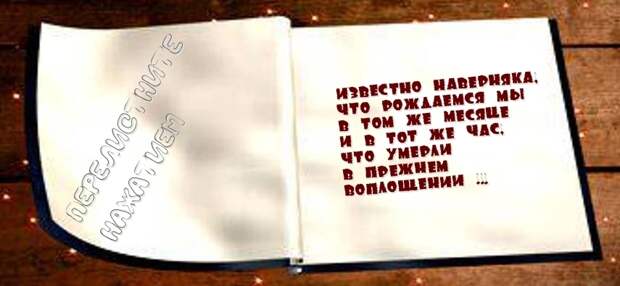 ПЕРЕЛИСТНИТЕ
НАЖАТИЕМ
ИЗВЕСТНО НАВЕРНЯКА,
ЧТО РОЖДАЕМСЯ МЫ
В ТОМ ЖЕ МЕСЯЦЕ
И В ТОТ ЖЕ ЧАС,
ЧТО УМЕРЛИ
В ПРЕЖНЕМ
ВОПЛОЩЕНИИ ...